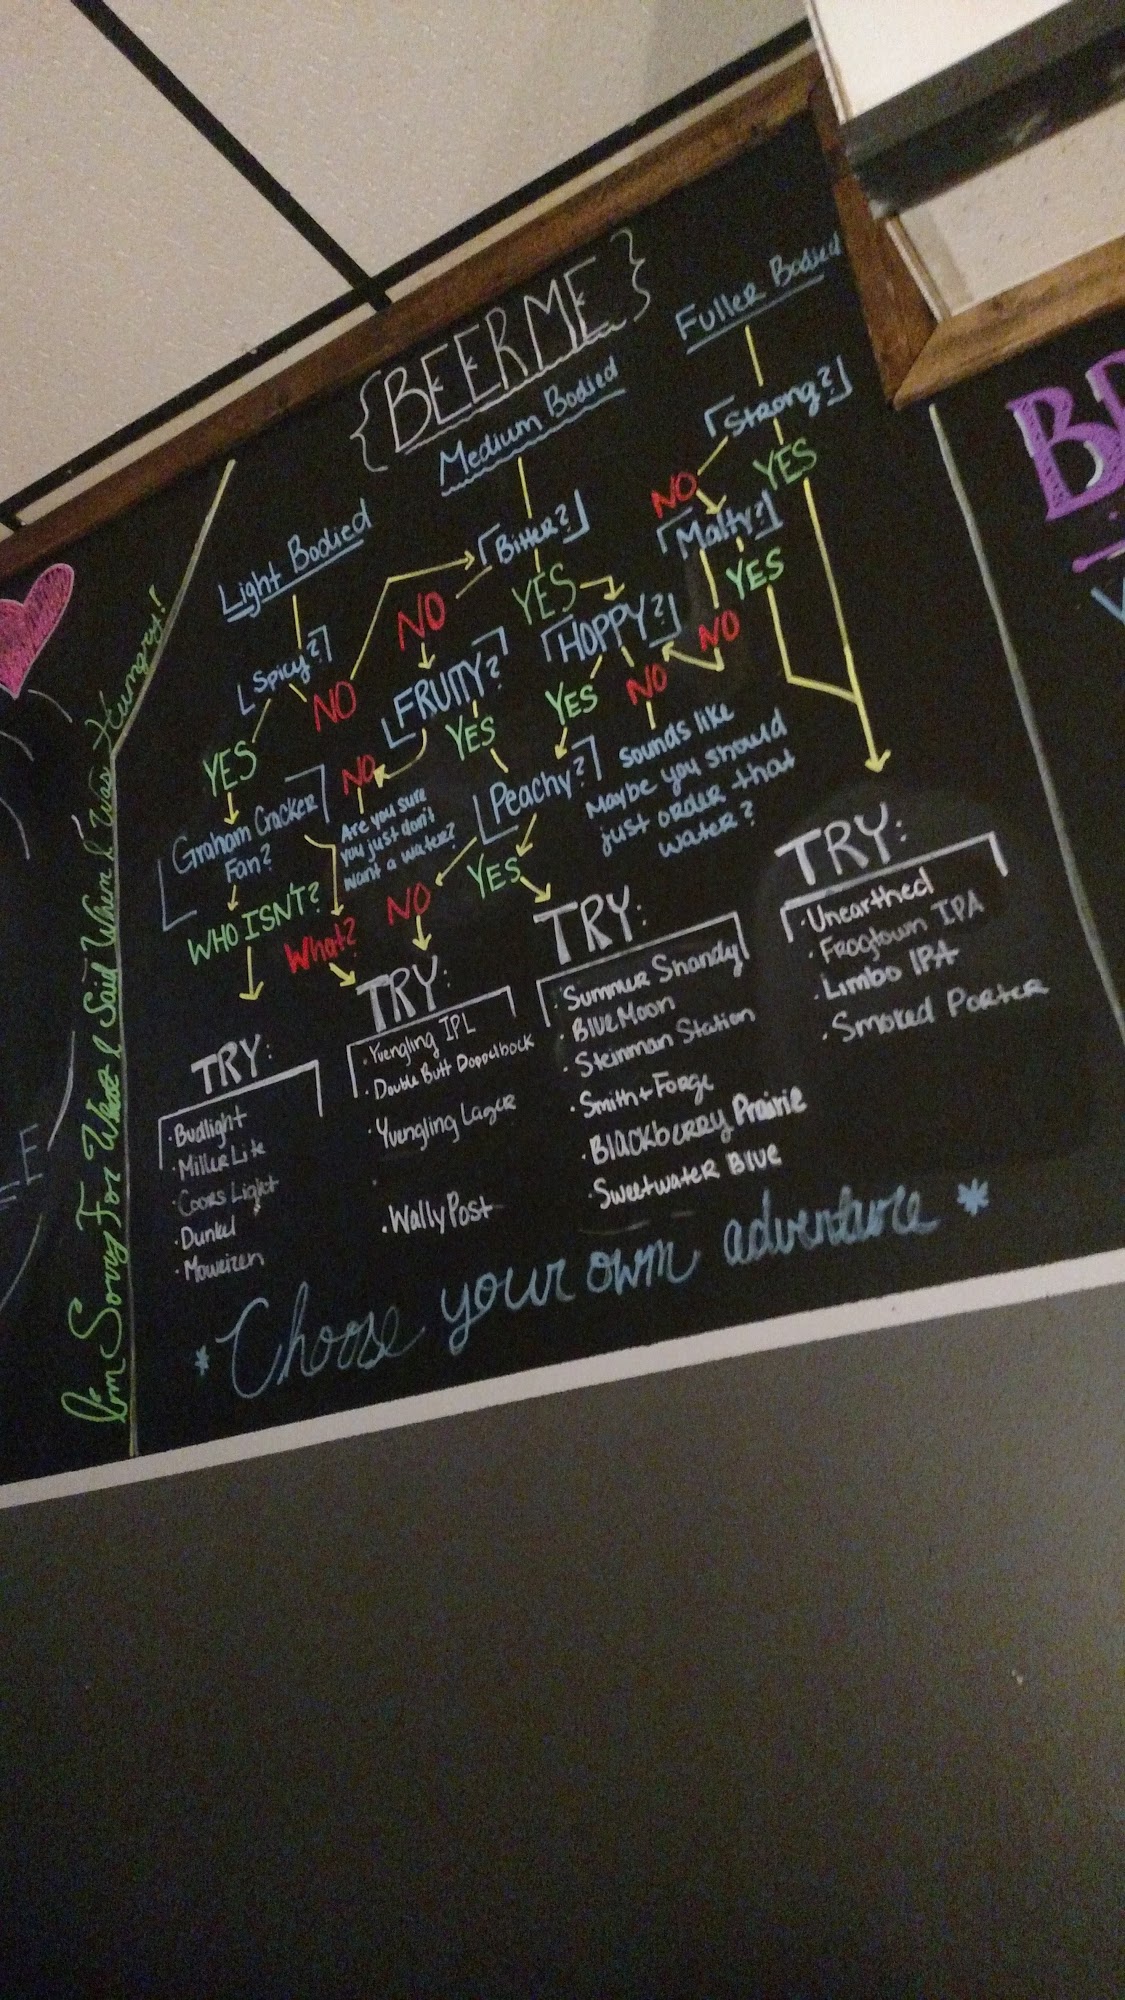 {BEER ME}
Light Bodied
Medium Bodied
Fuller Bodied
Spicy?
NO
YES
Graham Cracker
Fan?
WHO ISN'T?
What?
Bitter?
NO
YES
FRUITY?
NO
YES
Are you sure
you just don't
want a water?
Strong?
NO
YES
Malty?
YES
NO
HOPPY?
YES
NO
Sounds like
Maybe you should
just order that
water?
Peachy?
NO
YES
TRY:
·Budlight
·Miller Lite
·Coors Light
·Dunkel
TRY:
·Yuengling IPL
·Double Butt Doppelbock
·Yuengling Lager
·
·Wally Post
TRY:
·Summer Shandy
·Blue Moon
·Steinman Station
·Smith + Forge
·Blackberry Prairie
·Sweetwater Blue
TRY:
·Unearthed
·Frogtown IPA
·Limbo IPA
·Smoked Porter
*Choose your own adventure*
I'm Sorry For What I Said When I Was Hungry!